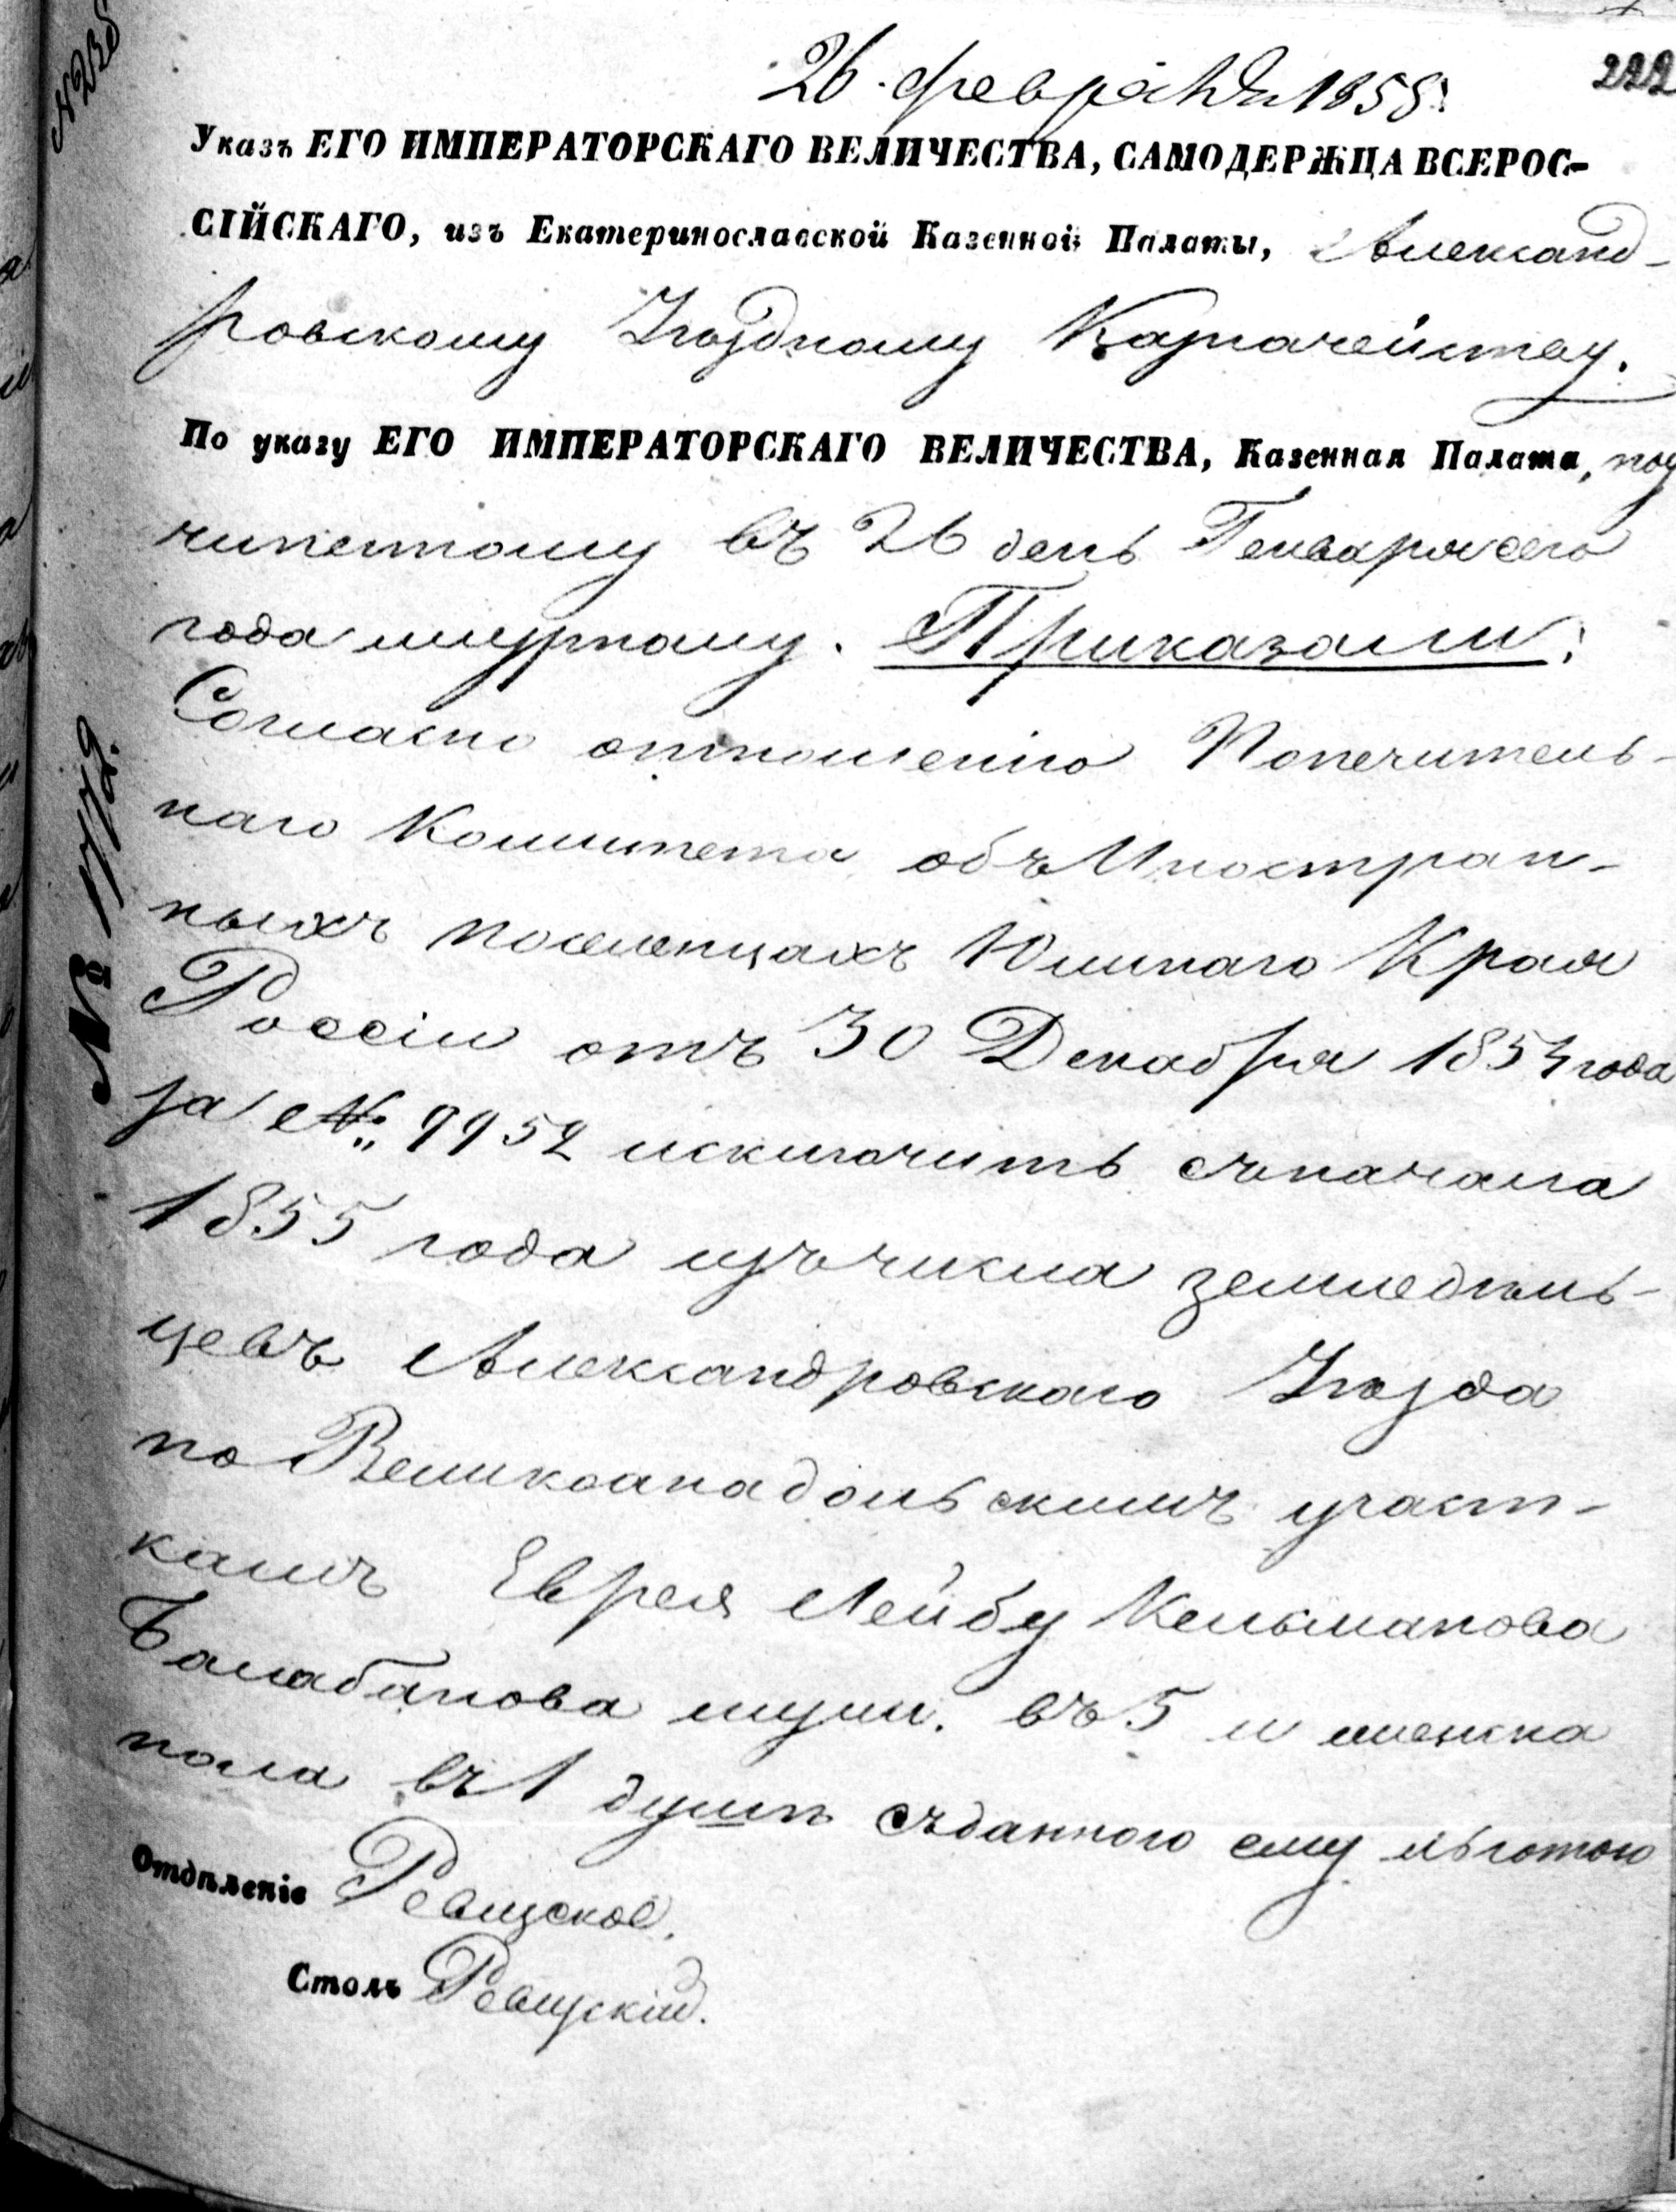 26 февраля 1855:
222
Указъ ЕГО ИМПЕРАТОРСКАГО ВЕЛИЧЕСТВА, САМОДЕРЖЦА ВСЕРОС-
СІЙСКАГО, изъ Екатеринославской Казенной Палаты, Александ-
ровскому Уѣздному Казначейству.
По указу ЕГО ИМПЕРАТОРСКАГО ВЕЛИЧЕСТВА, Казенная Палата, по у
чиненному въ 26 день Генваря сего
года журналу. Приказали:
Согласно отношенію Попечитель-
наго Комитета объ Иностран-
ныхъ поселенцахъ Южнаго Края
Россіи отъ 30 Декабря 1854 года
за №: 9952 исключить съ начала
1855 года изъ числа земледѣль-
цевъ Александровскаго Уѣзда
по Великоанадольскимъ участ-
камъ Еврея Лейбу Кельманова
Балабанова муж. въ 5 и женска
пола въ 1 душѣ съ данною ему льготою
Отдѣленіе Ревизское.
Столъ Ревизскій.
№ 1779.